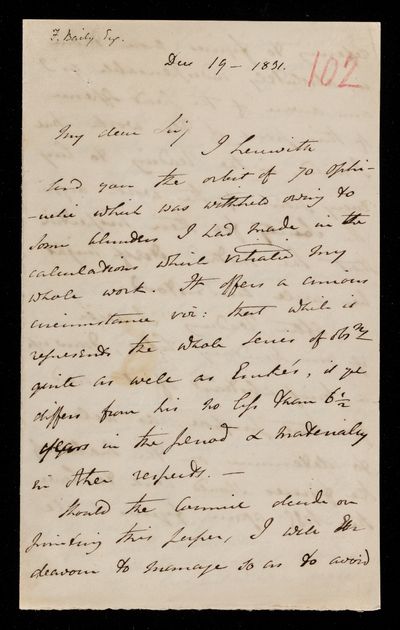 F. Baily Esq.
Dec 19 - 1831.
102
My dear Sir
I herewith
send you the orbit of 70 Ophi-
-uchi which was withheld owing to
some blunders I had made in the
calculations which vitiated my
whole work. It offers a curious
circumstance viz: that while it
represents the whole series of obsns
quite as well as Encke's, it yet
differs from his no less than 6 1/2
years in the period & materially
in other respects. —
Should the Council decide on
printing this paper, I will en
deavour to manage so as to avoid